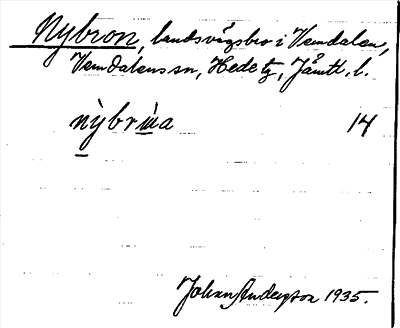 Nybron, landsvägsbro i Vemdalen,
Vemdalens sn, Hede tg, Jämtl. l.
nỳbrɯ̀a 14
Johan Anderzson 1935.